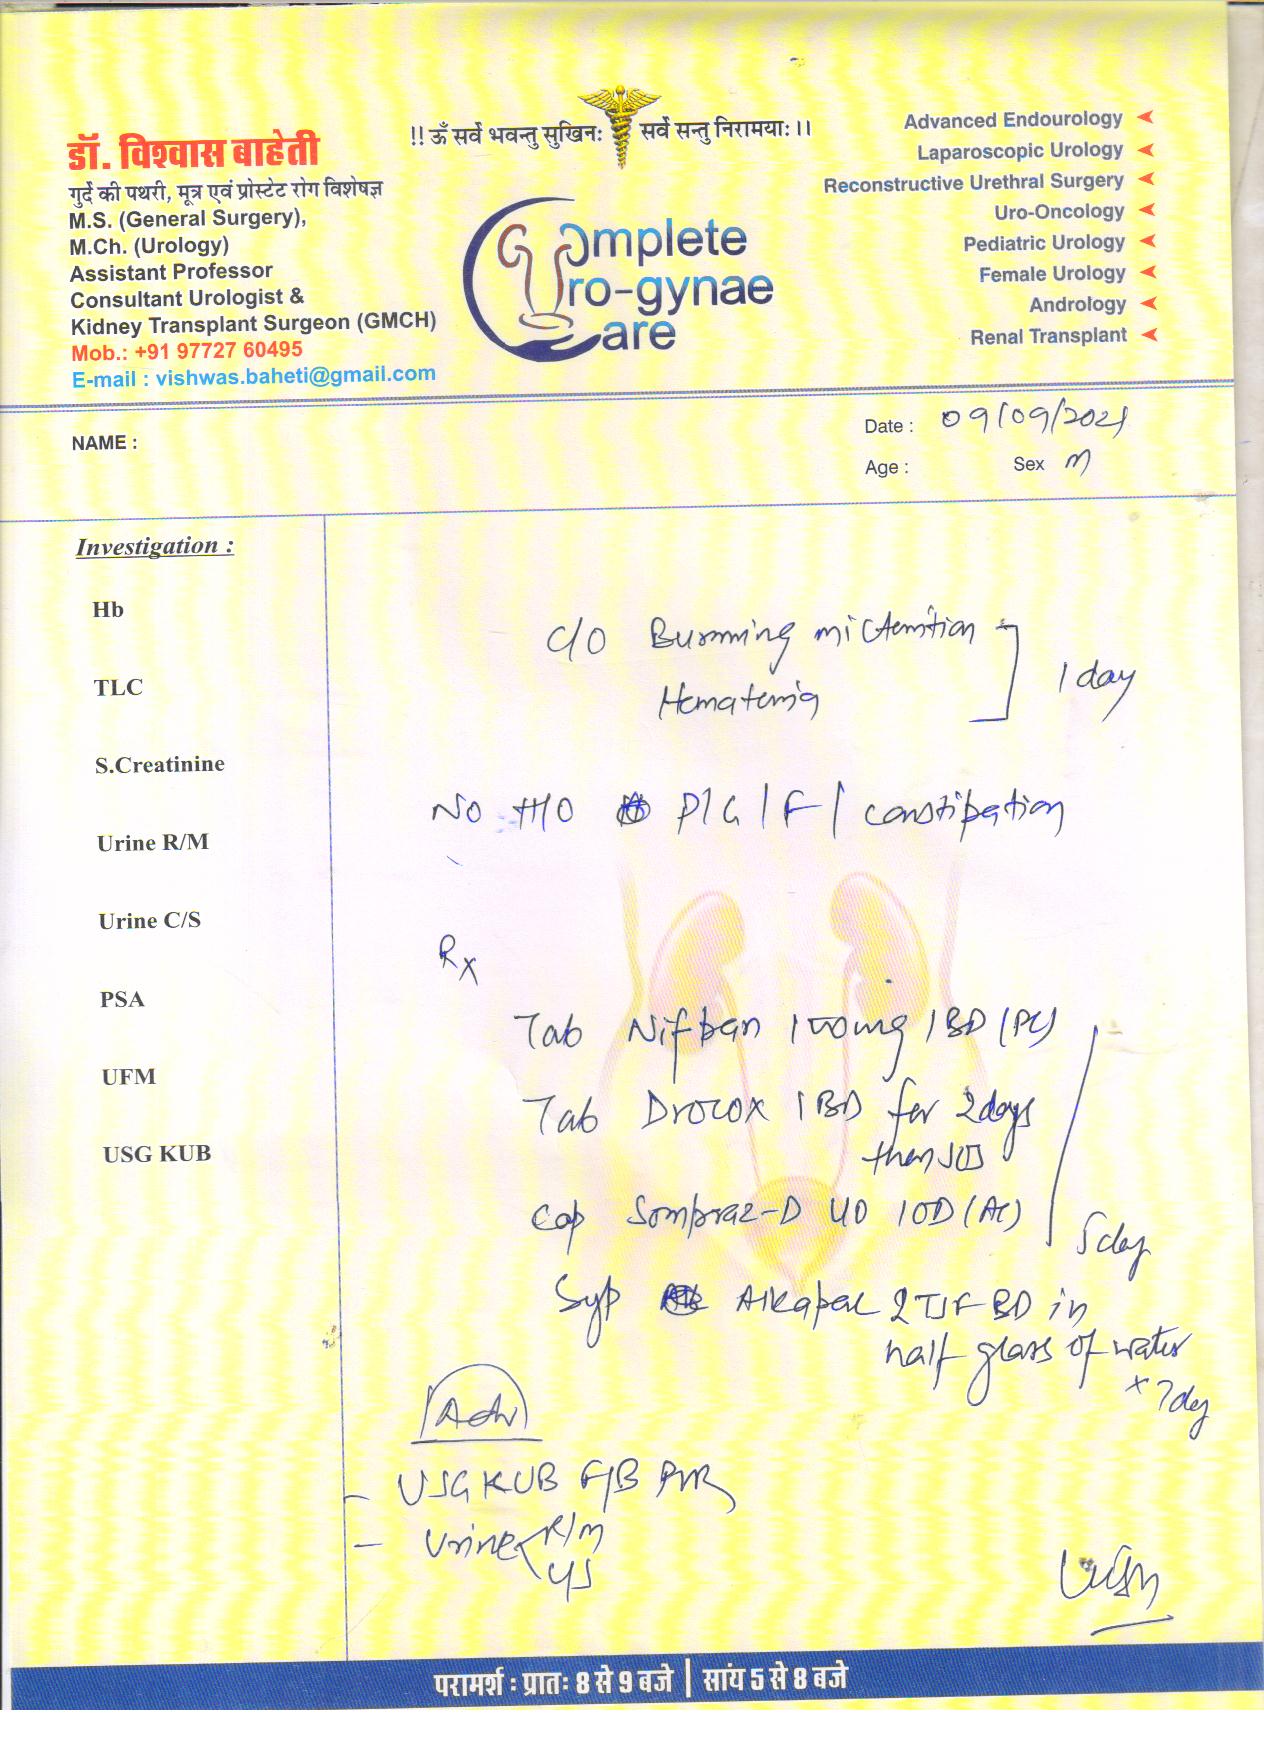 !! ॐ सर्वे भवन्तु सुखिनः सर्वे सन्तु निरामयाः ।।
डॉ. विश्वास बाहेती
गुर्दे की पथरी, मूत्र एवं प्रोस्टेट रोग विशेषज्ञ
M.S. (General Surgery),
M.Ch. (Urology)
Assistant Professor
Consultant Urologist &
Kidney Transplant Surgeon (GMCH)
Mob.: +91 97727 60495
E-mail : vishwas.baheti@gmail.com
Complete
Uro-gynae
Care
Advanced Endourology
Laparoscopic Urology
Reconstructive Urethral Surgery
Uro-Oncology
Pediatric Urology
Female Urology
Andrology
Renal Transplant
NAME :
Date : 09/09/2021
Age : Sex M
Investigation :
Hb
TLC
S.Creatinine
Urine R/M
Urine C/S
PSA
UFM
USG KUB
C/O Burning
1 day
No H/O P/G/F/ constipation
Rx
Tab Nifban 100mg 1BD (PC)
Tab Drocox 1 BD for 2days
then
Cap Sompraz-D 40 1OD (AC)
5 day
Syp 2 TSF BD in
half glass of water
x 7 day
Adv
- USG KUB F/B PVR
- Urine R/M
C/S
परामर्श : प्रातः 8 से 9 बजे | सांय 5 से 8 बजे